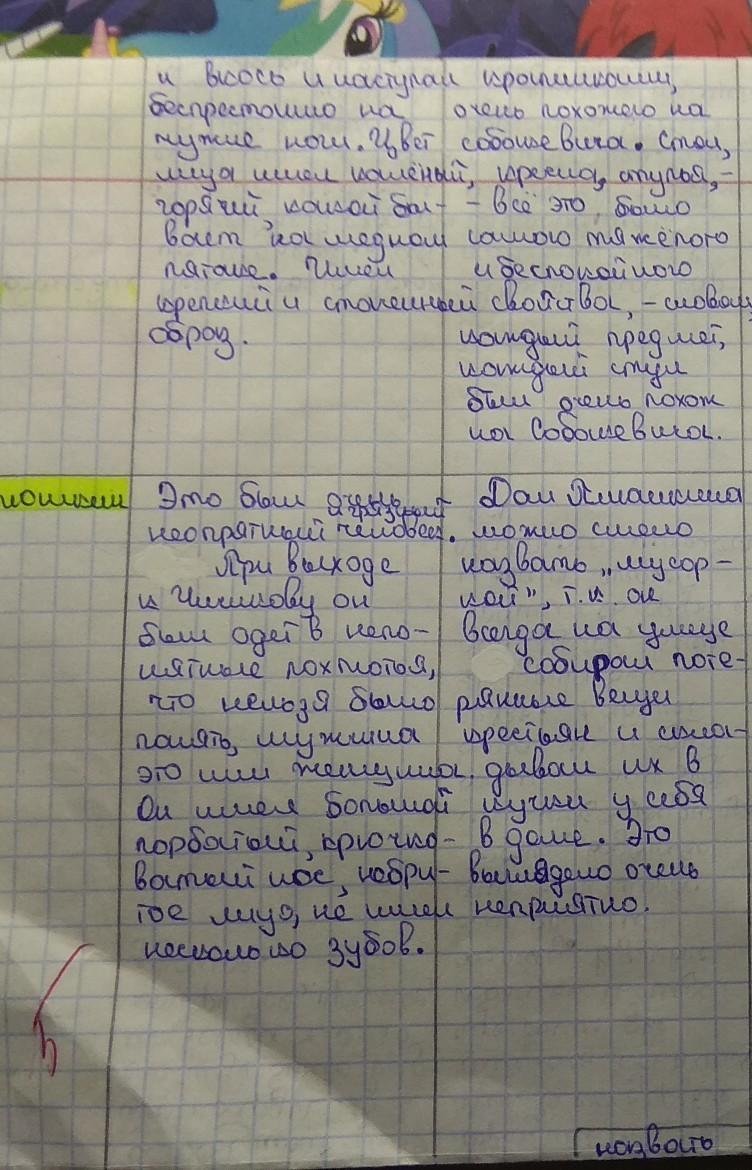 и вкось и наступал
беспрестанно на
чужие ноги. Цвет
лица имел калёный,
горячий, какой бы-
вает на медном
пятаке. Имел
крепкий и
образ.
крапинками,
очень похожего на
Собакевича. Стол,
кресла, стулья, -
- всё это было
самого тяжёлого
и беспокойного
свойства, - словом,
каждый предмет,
каждый стул
был очень похож
на Собакевича.
Это был очень
грязный
неопрятный человек.
При выходе
к Чичикову он
был одет в непо-
нятные лохмотья,
что нельзя было
понять, мужчина
это или женщина.
Он имел большой
горбатый, крючко-
ватый нос, небри-
тое лицо, не имел
несколько зубов.
Дом Плюшкина
можно смело
назвать „мусор-
кой", т.к. он
всегда на улице
собирал поте-
рянные вещи
крестьян и скла-
дывал их в
кучки у себя
в доме. Это
выглядело очень
неприятно.
назвать